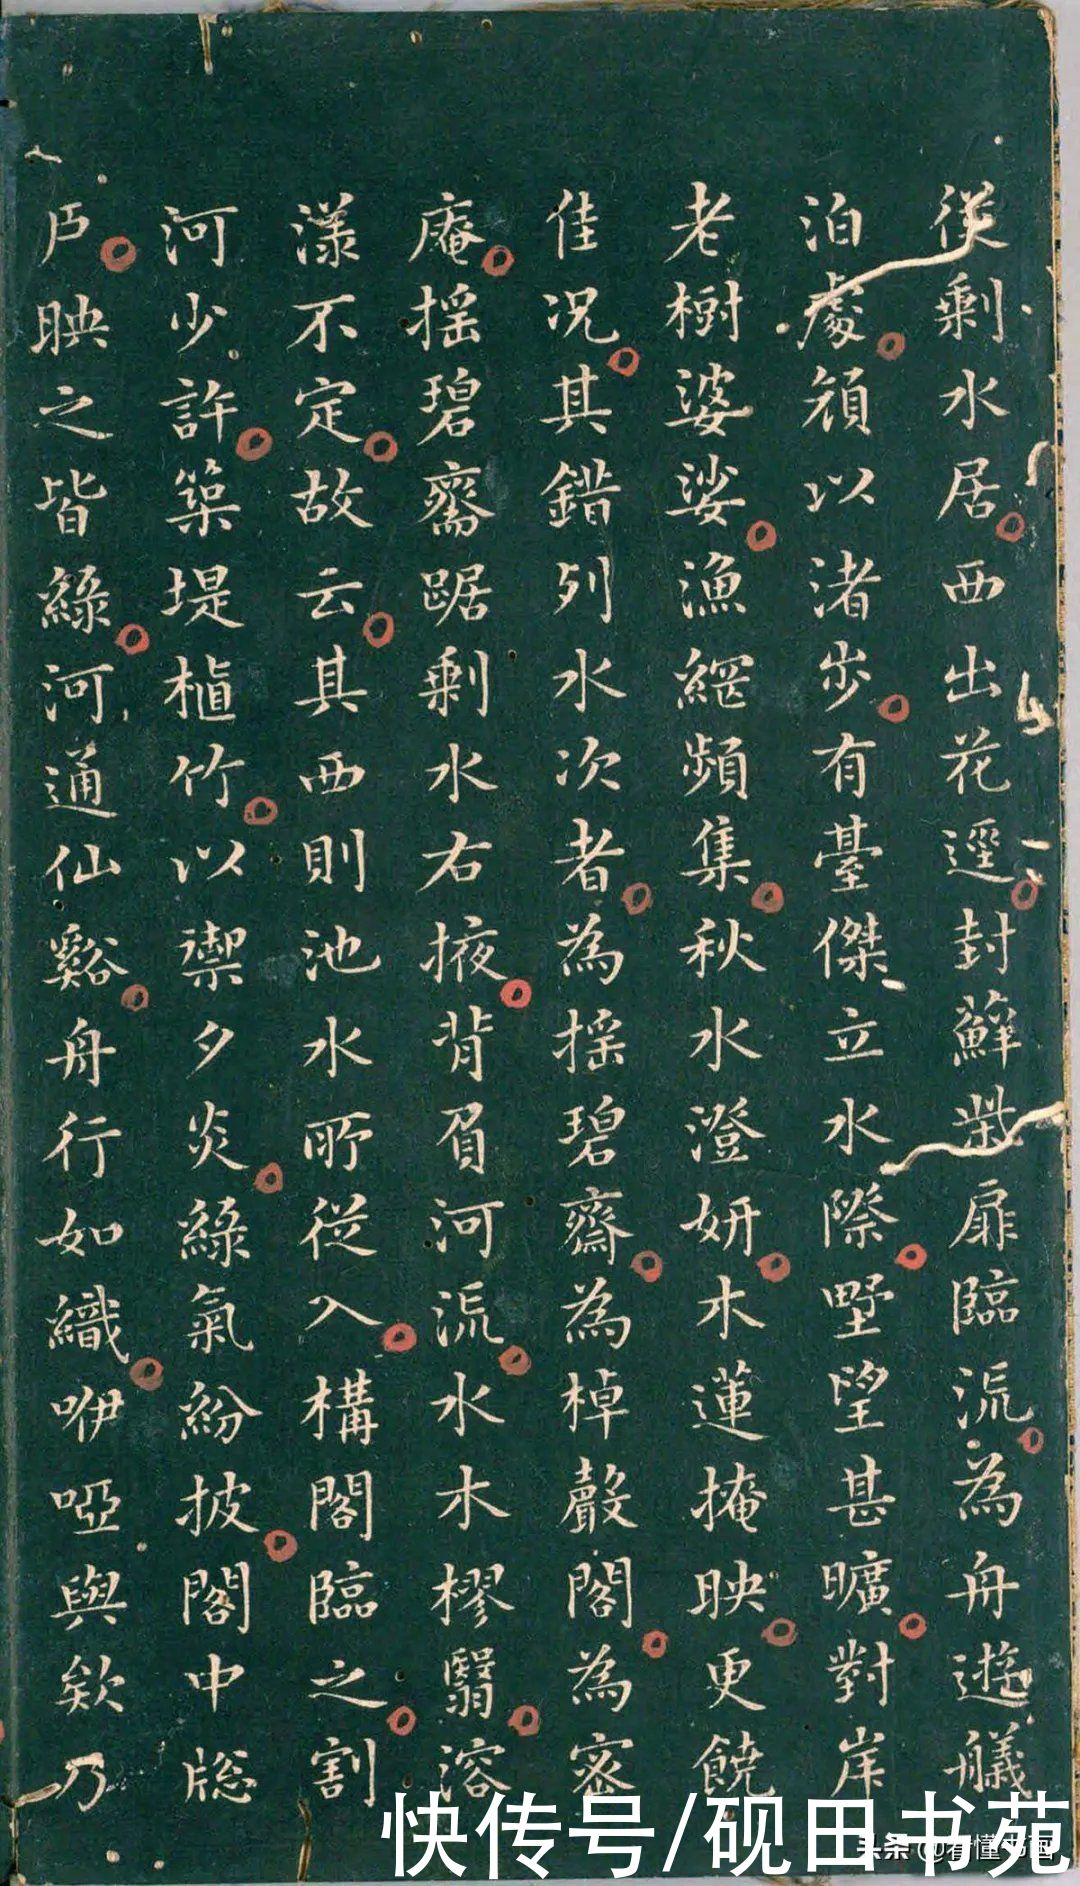 從剩水居西出花逕封蘚柴扉臨流為舟遊艤
泊處頫以渚步有臺傑立水際墅望甚曠對岸
老樹婆娑漁網頻集秋水澄妍木蓮掩映更饒
佳况其錯列水次者為揺碧齋為棹聲閣為密
庵揺碧齋踞剩水右掖背負河流水木樛翳溶
漾不定故云其西則池水所從入構閣臨之割
河少許築堤植竹以禦夕炎綠氣紛披閣中牕
戶映之皆綠河通仙谿舟行如織咿啞與欸乃
快传号/砚田书苑
头条 @看懂书画